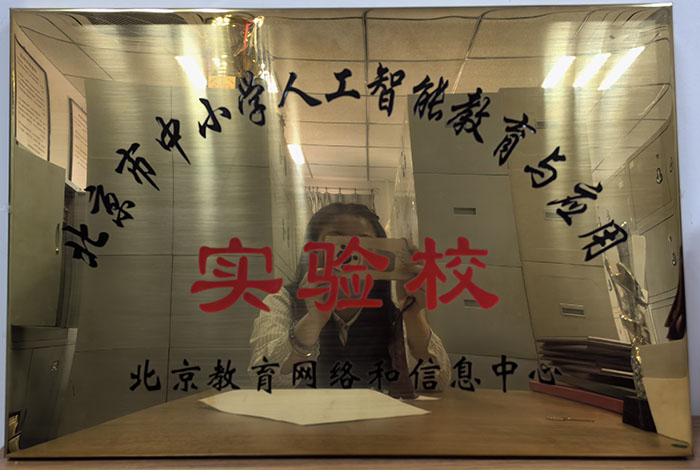 北京市中小学人工智能教育与应用
实验校
北京教育网络和信息中心